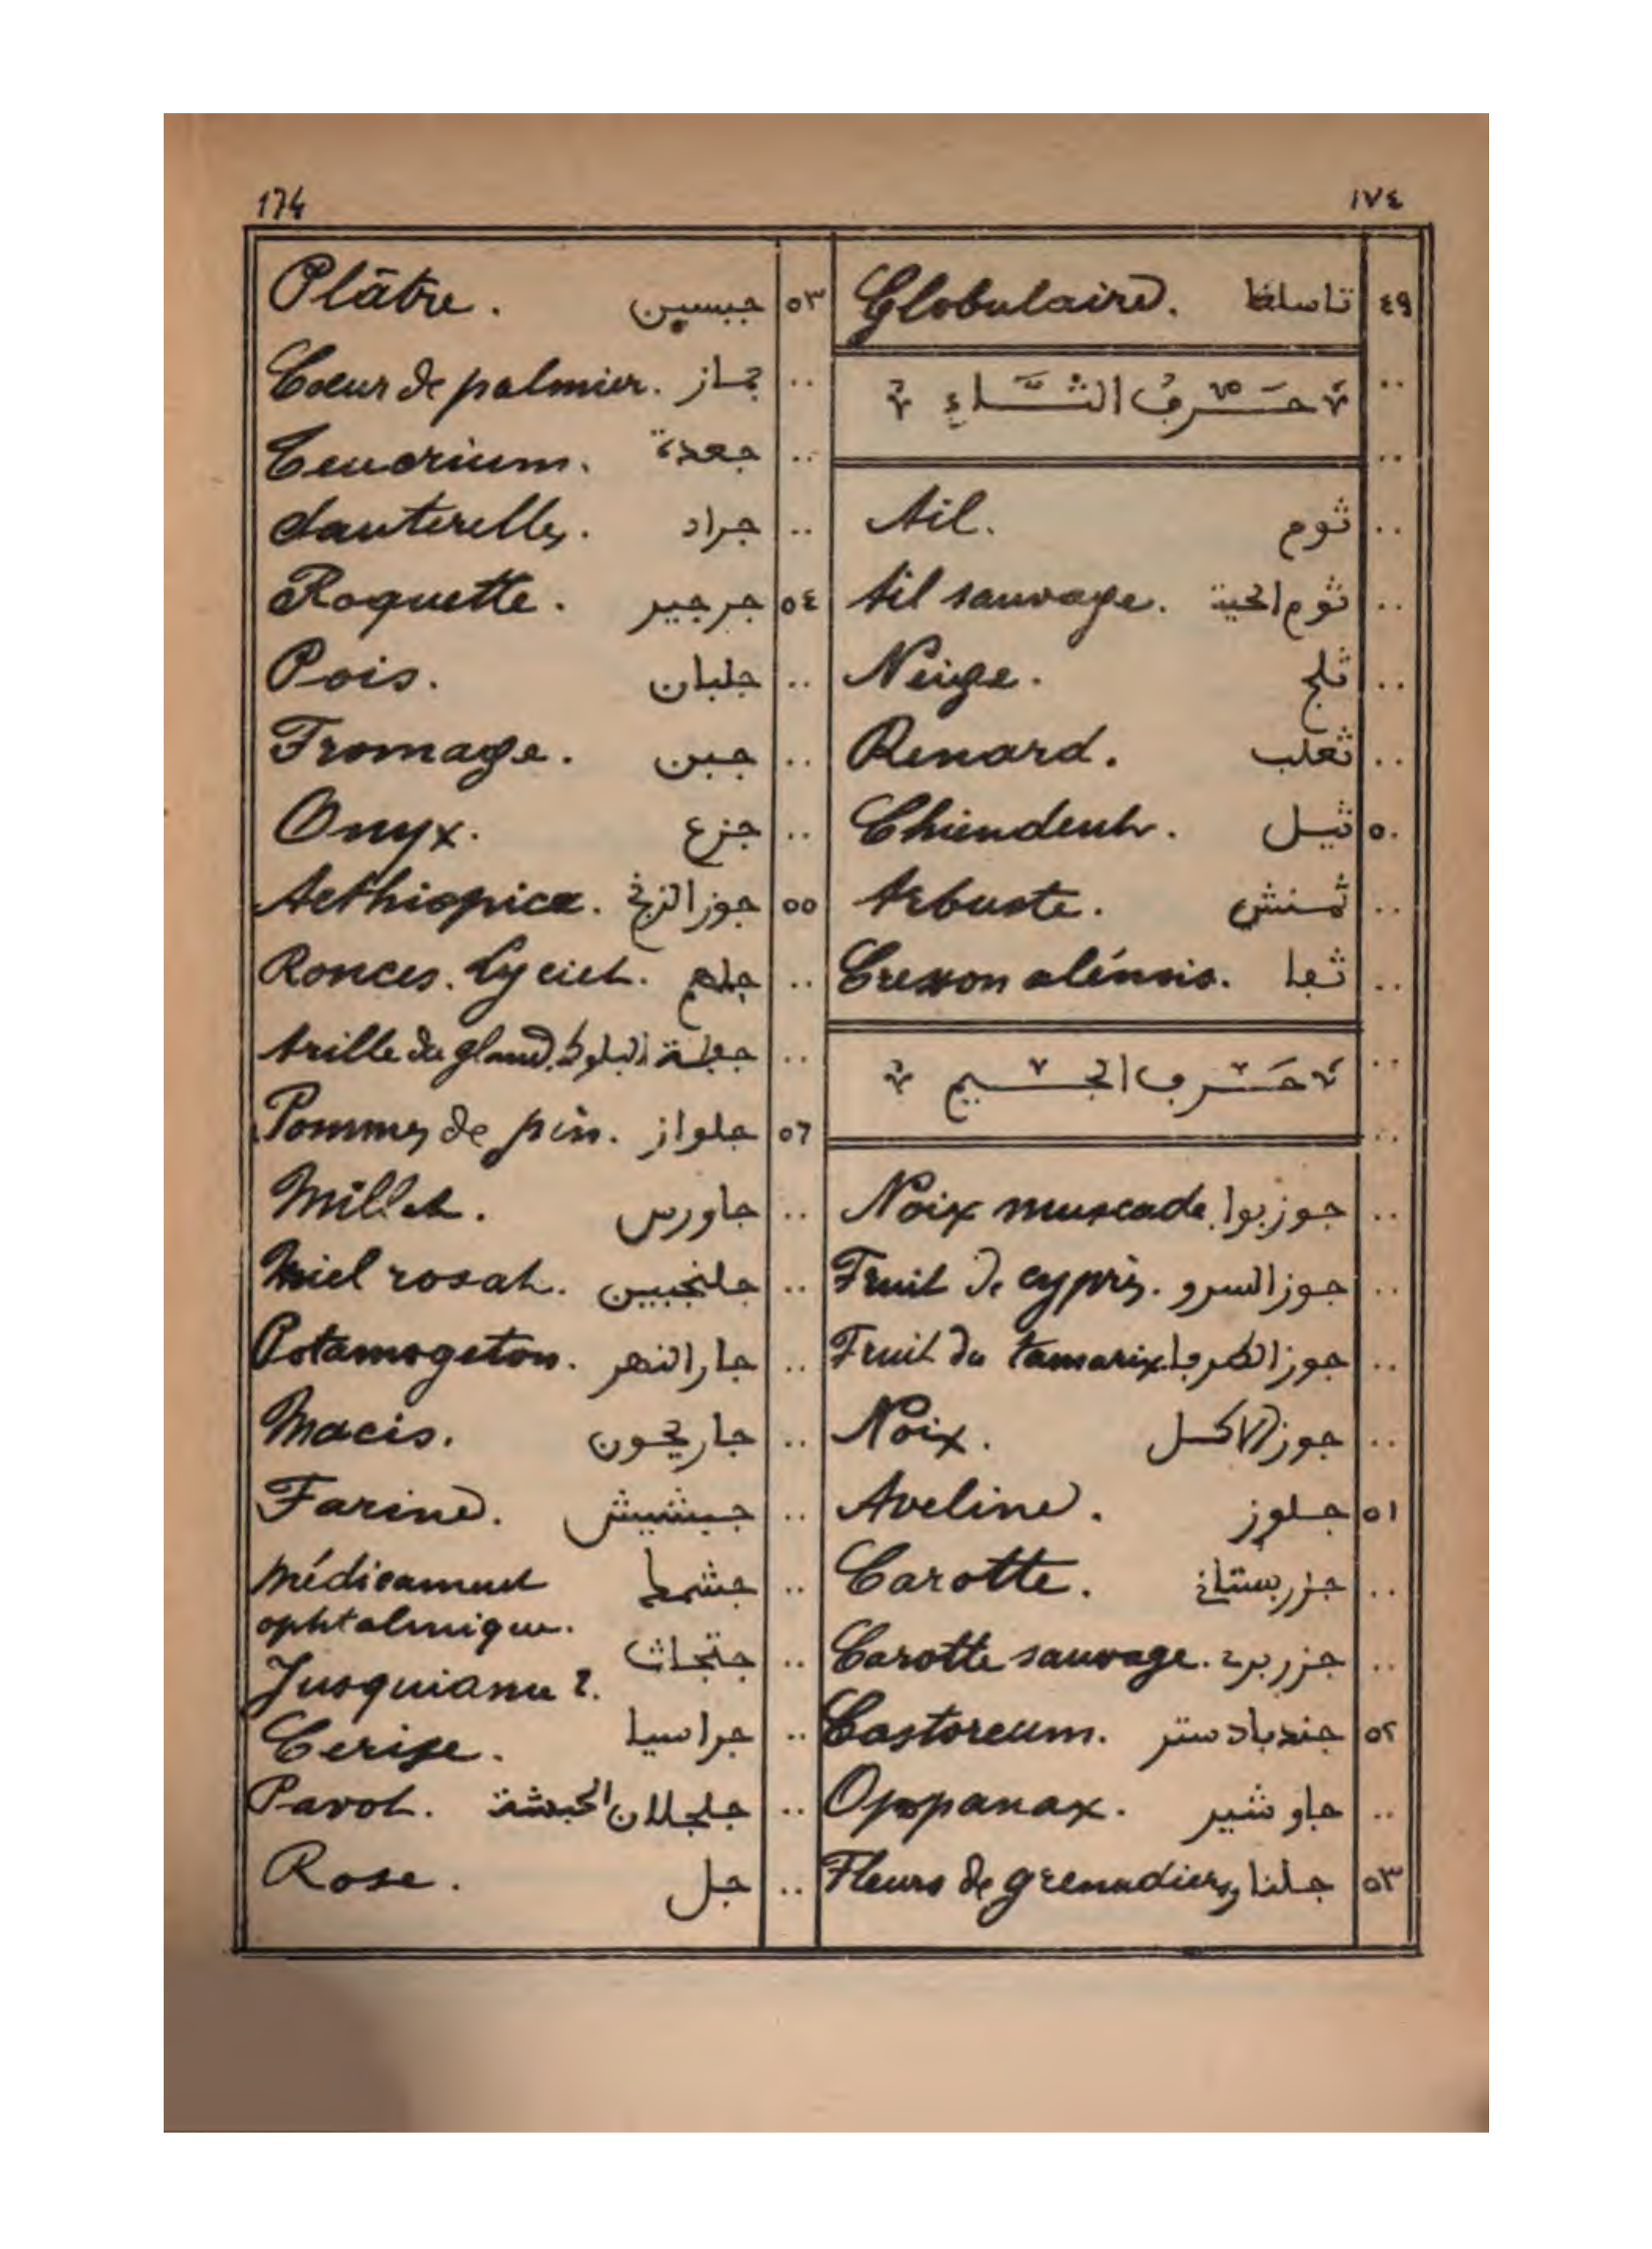 174 ١٧٤
٤٩ تاسلغا Globulaire.
حرف الثاء
ثوم Ail.
ثوم الحية Ail sauvage.
ثلج Neige.
ثعلب Renard.
٥٠ ثيل Chiendent.
ثمنش Arbuste.
ثفا Cresson alénois.
حرف الجيم
جوز بوا Noix muscade.
جوز السرو Fruit de cyprès.
جوز الطرفا Fruit du tamarix.
جوز الاكل Noix.
٥١ جلوز Aveline.
.. جزر بستاني Carotte.
.. جزر بري Carotte sauvage.
٥٢ جندبادستر Castoreum.
.. جاوشير Oppanax.
٥٣ جلنار Fleurs de grenadiers.
٥٣ جبسين Plâtre.
.. جماز Coeur de palmier.
.. جعدة Teucrium.
.. جراد Sauterelles.
٥٤ جرجير Roquette.
.. جلبان Pois.
.. جبن Fromage.
.. جزع Onyx.
٥٥ جوز الزنج Aethiopica.
.. Ronces. Lyciet.
.. جفلة البلوط Arille du gland.
٥٦ جلواز Pommes de pin.
.. جاورس Millet.
.. جلنجبين Miel rosat.
.. جار النهر Potamogeton.
.. جاريكون Macis.
.. جشيش Farine.
.. جشمط Médicament
ophtalmique.
.. Jusquiame ?.
.. جراسيا Cerise.
.. جلجلان الحبشة Pavot.
.. جل Rose.